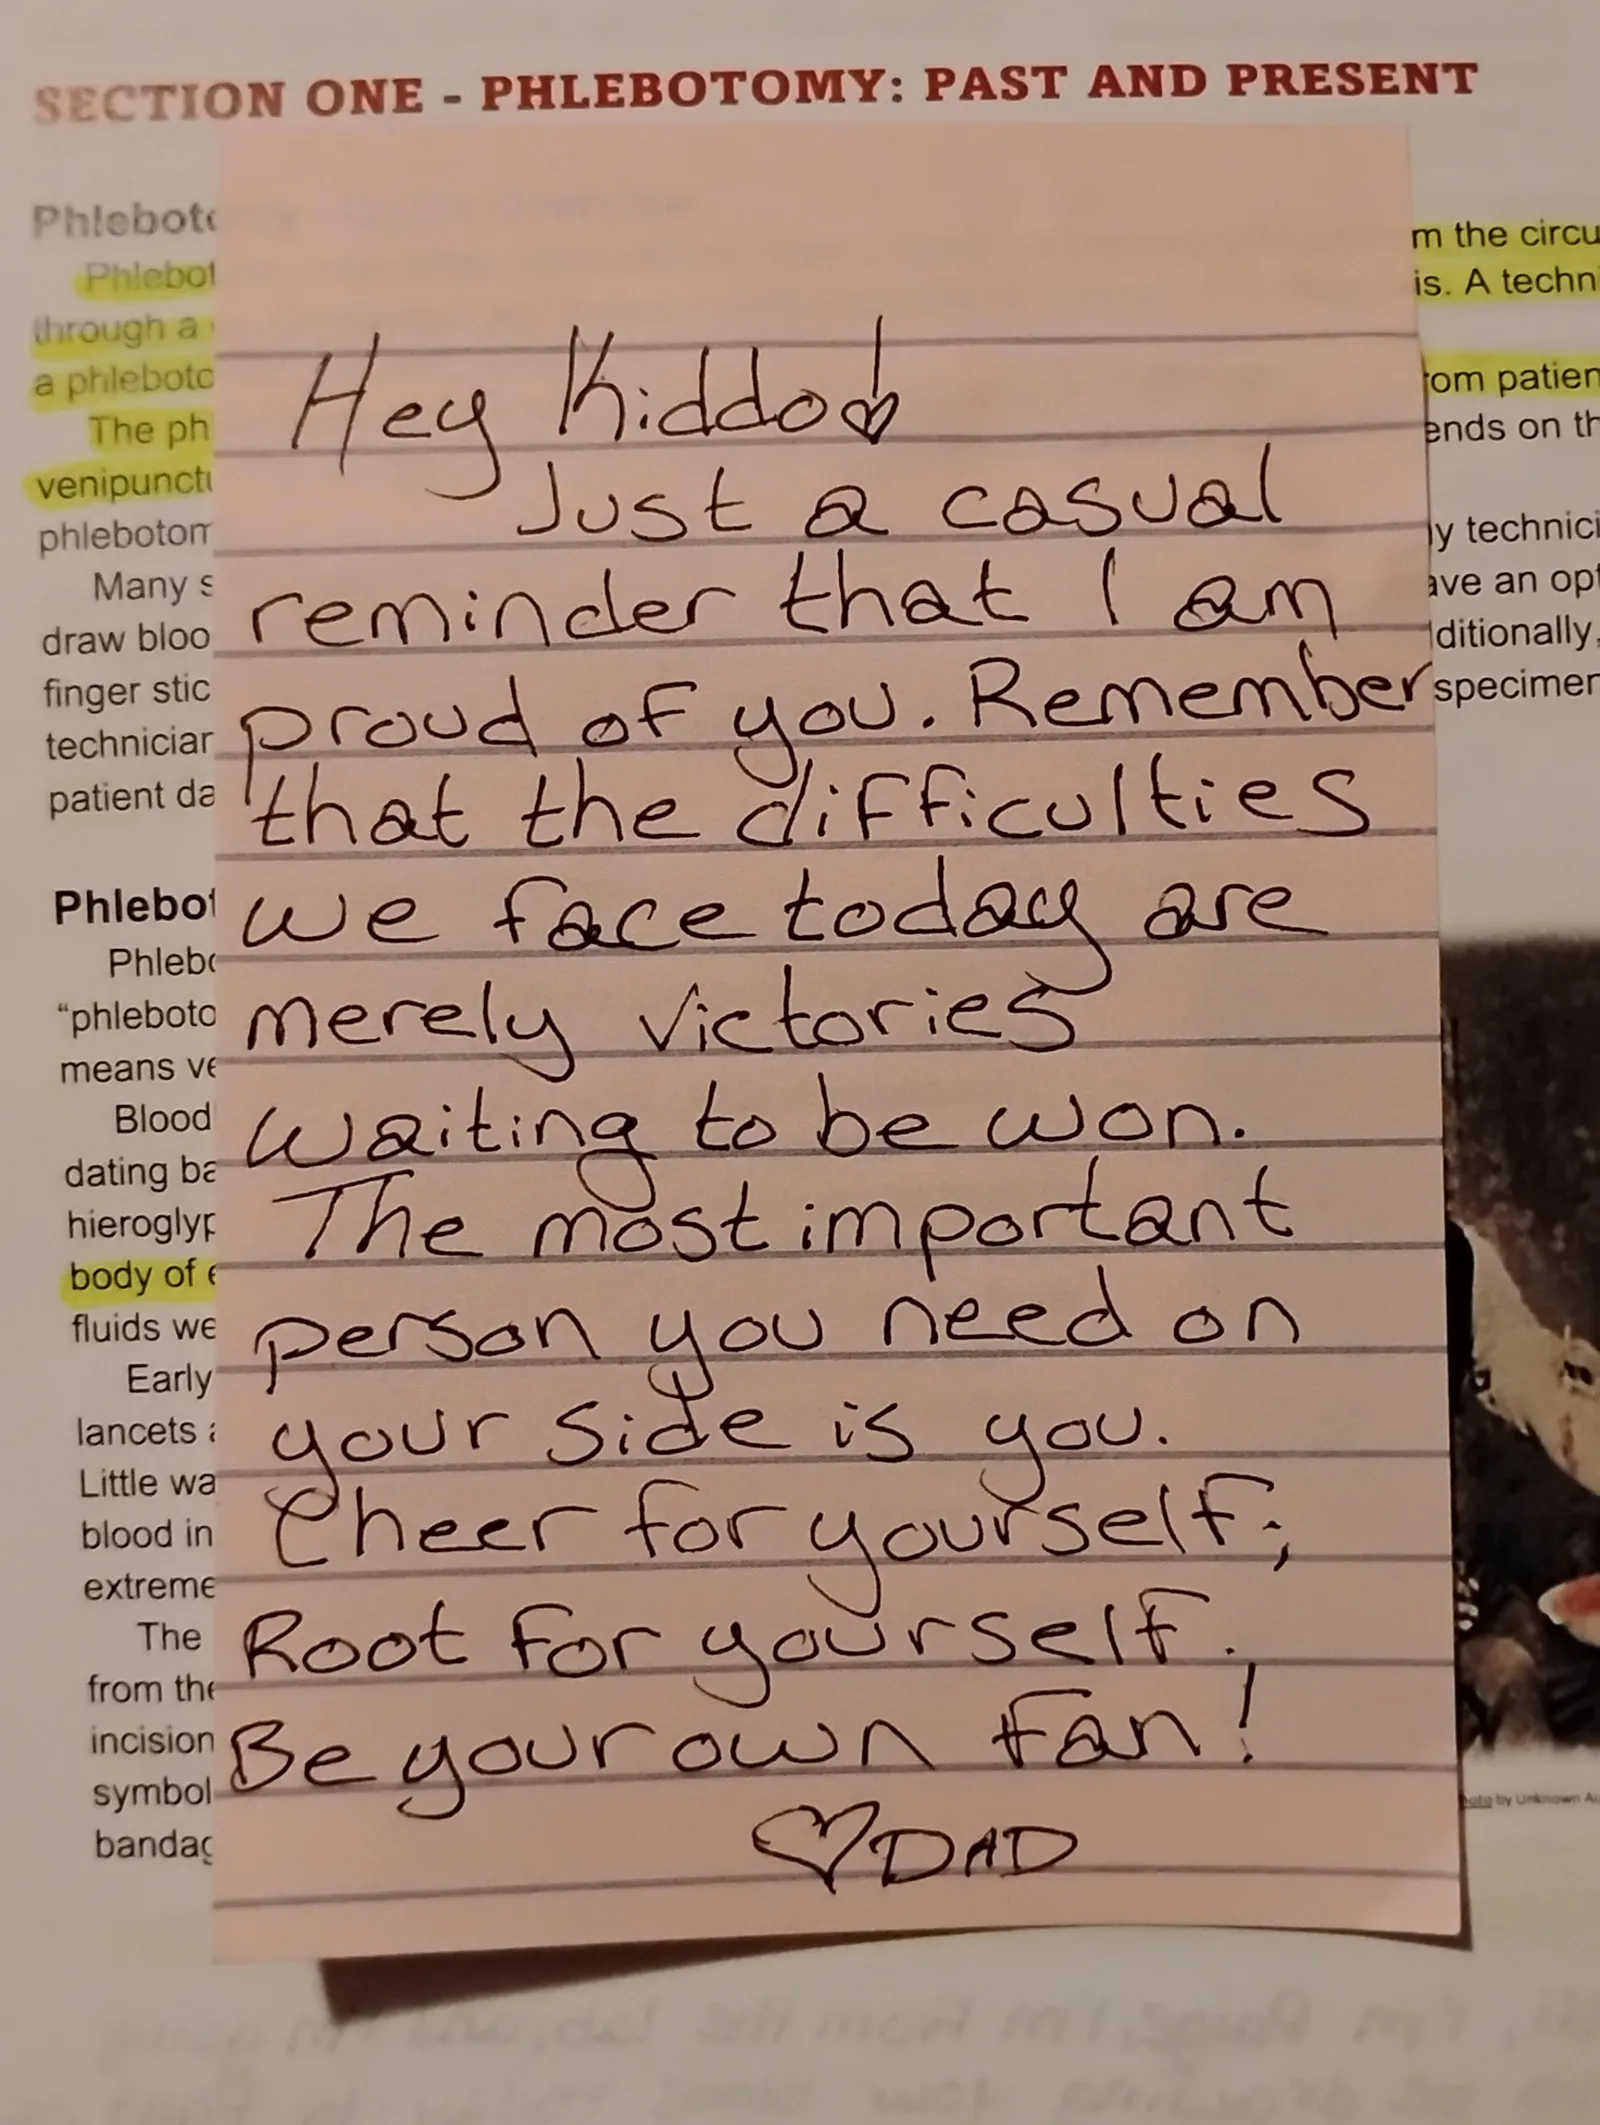 SECTION ONE - PHLEBOTOMY: PAST AND PRESENT
Hey Kiddo!
Just a casual
reminder that I am
proud of you. Remember
that the difficulties
we face today are
merely victories
waiting to be won.
The most important
person you need on
your side is you.
Cheer for yourself;
Root for yourself.
Be your own fan!
♡DAD
m the circu
is. A techn
om patien
ends on th
y technici
ave an opt
ditionally,
specimen
through a
a phleboto
The ph
venipunct
phlebotom
Many s
draw bloo
finger stic
technician
patient da
Phlebot
Phlebo
"phleboto
means ve
Blood
dating ba
hieroglyp
body of e
fluids we
Early
lancets
Little wa
blood in
extreme
The
from the
incision
symbol
bandag
by Unknown Au